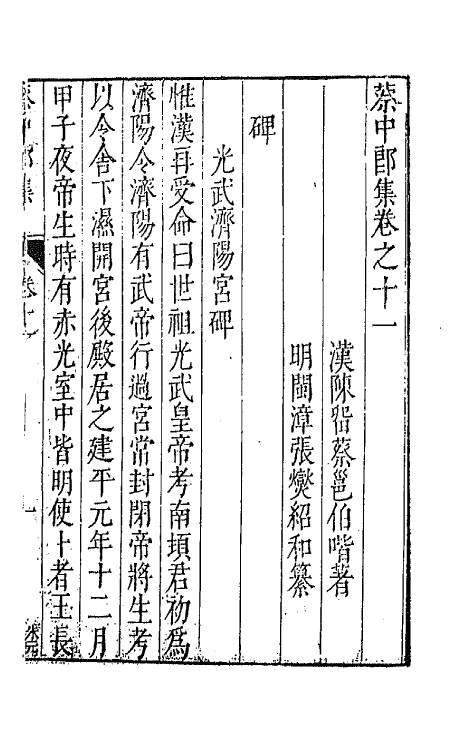 蔡中郎集卷之十一
漢陳畱蔡邕伯喈著
明閩漳張燮紹和纂
碑
光武濟陽宮碑
惟漢再受命曰世祖光武皇帝考南頓君初爲
濟陽令濟陽有武帝行過宮常封閉帝將生考
以令舍下濕開宮後殿居之建平元年十二月
甲子夜帝生時有赤光室中皆明使卜者王長
蔡中郎集
卷十一
一